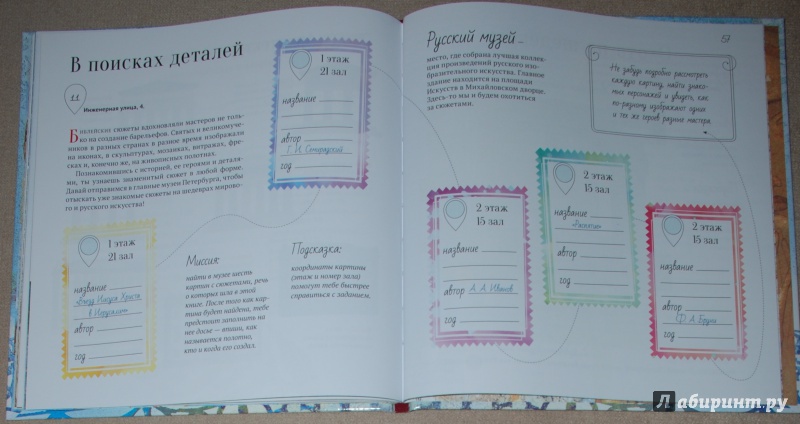 В поисках деталей
11
Инженерная улица, 4.
Библейские сюжеты вдохновляли мастеров не толь-
ко на создание барельефов. Святых и великомуче-
ников в разных странах в разное время изображали
на иконах, в скульптурах, мозаиках, витражах, фре-
сках и, конечно же, на живописных полотнах.
Познакомившись с историей, ее героями и деталя-
ми, ты узнаешь знаменитый сюжет в любой форме.
Давай отправимся в главные музеи Петербурга, чтобы
отыскать уже знакомые сюжеты на шедеврах мирово-
го и русского искусства!
1 этаж
21 зал
название
автор
Г. И. Семирадский
год
1 этаж
21 зал
название
«Въезд Иисуса Христа
в Иерусалим»
автор
год
Миссия:
найти в музее шесть
картин с сюжетами, речь
о которых шла в этой
книге. После того как кар-
тина будет найдена, тебе
предстоит заполнить на
нее досье — впиши, как
называется полотно,
кто и когда его создал.
Подсказка:
координаты картины
(этаж и номер зала)
помогут тебе быстрее
справиться с заданием.
57
Русский музей —
место, где собрана лучшая коллек-
ция произведений русского изо-
бразительного искусства. Главное
здание находится на площади
Искусств в Михайловском дворце.
Здесь-то мы и будем охотиться
за сюжетами.
Не забудь подробно рассмотреть
каждую картину, найти знако-
мых персонажей и увидеть, как
по-разному изображают одних
и тех же героев разные мастера.
2 этаж
15 зал
название
автор А. А. Иванов
год
2 этаж
15 зал
название
«Распятие»
автор
год
2 этаж
15 зал
название
автор
Ф. А. Бруни
год
Лабиринт.ру